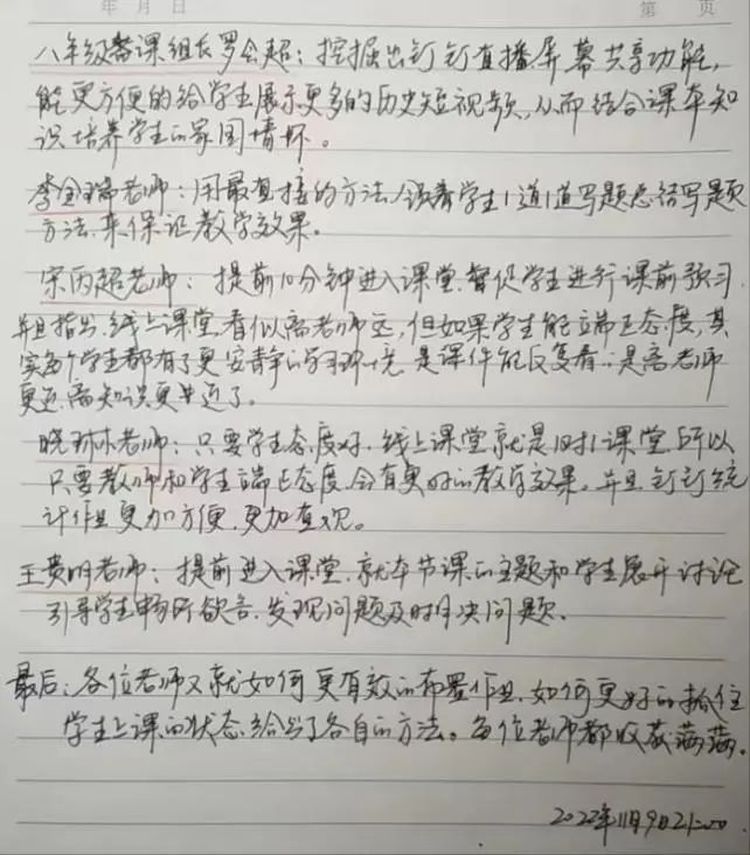 年 月 日 第 页
八年级备课组长罗会超：挖掘出钉钉直播屏幕共享功能，
能更方便的给学生展示更多的历史短视频，从而结合课本知
识培养学生的家国情怀。
李全瑞老师：用最直接的方法，领着学生1道1道写题总结写题
方法，来保证教学效果。
宋丙超老师：提前10分钟进入课堂，督促学生进行课前预习，
并且指出，线上课堂，看似离老师远，但如果学生能端正态度，其
实每个学生都有了更安静的学习环境，是课件能反复看，是离老师
更近，离知识更近了。
晓琳老师：只要学生态度好，线上课堂就是1对1课堂，所以
只要教师和学生端正态度，会有更好的教学效果。并且钉钉统
计作业更加方便，更加直观。
王贵明老师：提前进入课堂，就本节课的主题和学生展开讨论
引导学生畅所欲言，发现问题及时决问题。
最后：各位老师又就如何更有效的布置作业，如何更好的抓住
学生上课的状态，给出了各自的方法。每位老师都收获满满。
2022年11月9日21:00